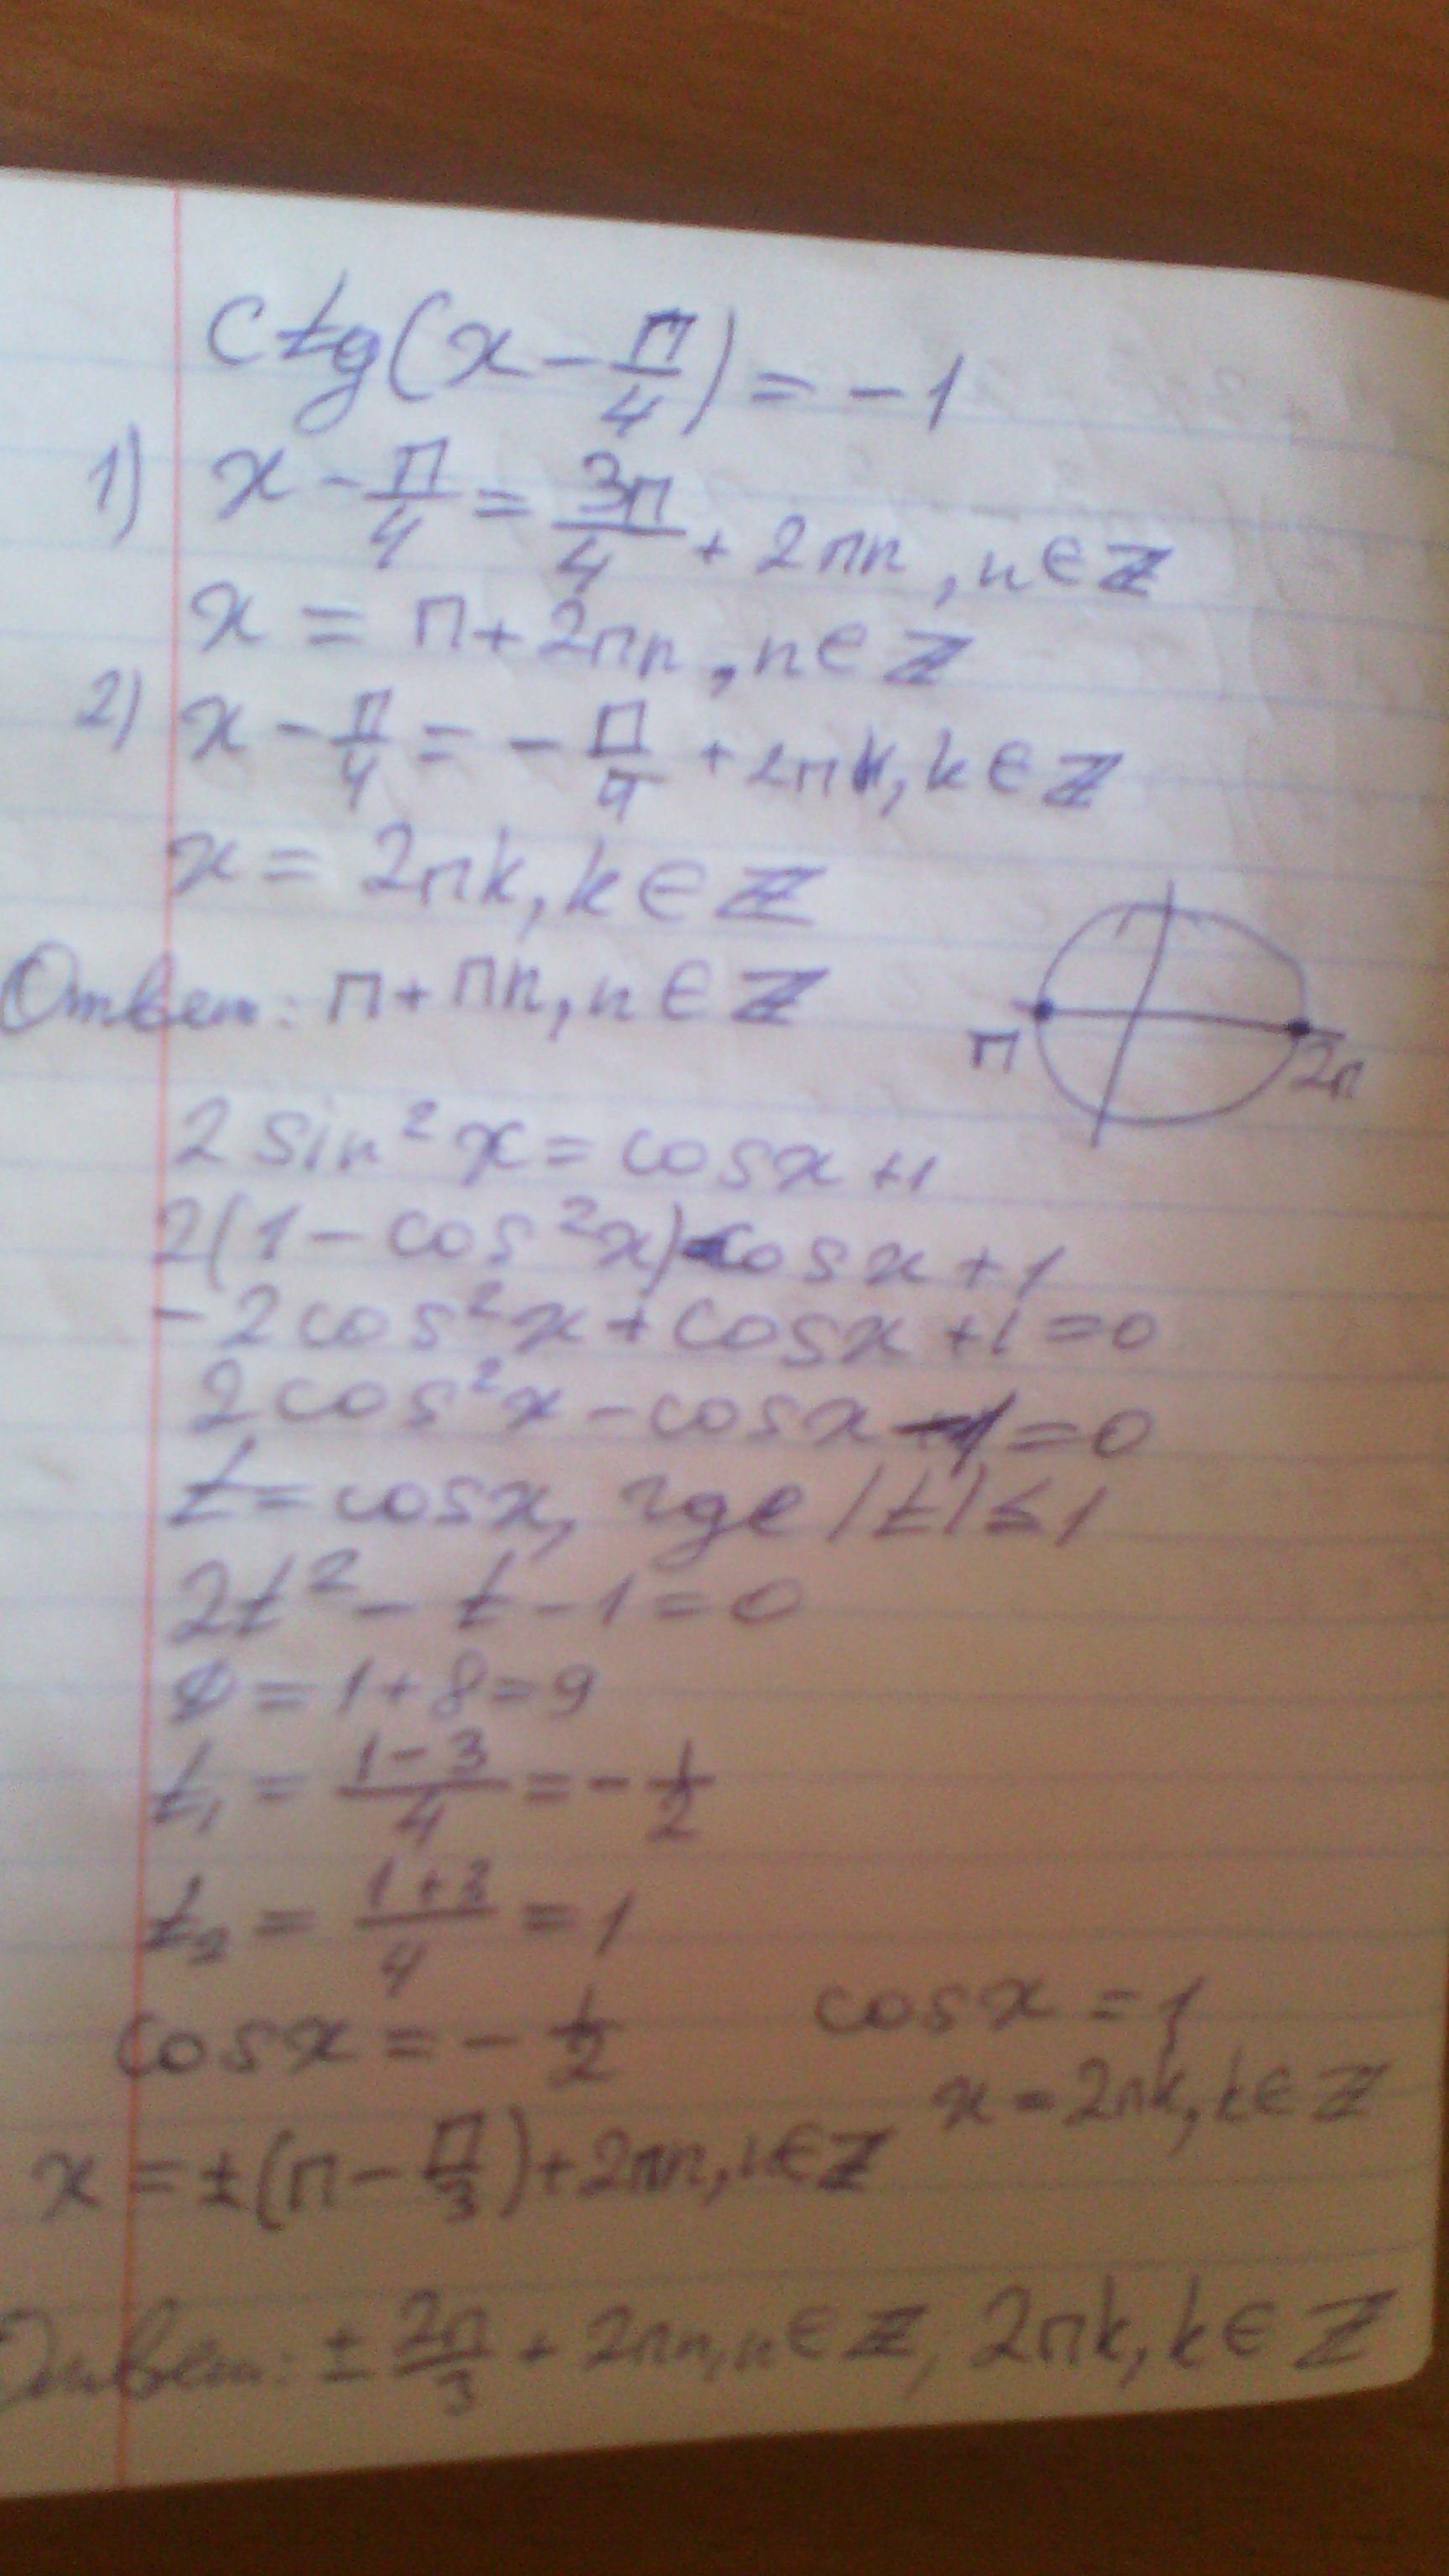 ctg(x - п/4) = -1
1) x - п/4 = 3п/4 + 2пn, n ∈ Z
x = п + 2пn, n ∈ Z
2) x - п/4 = - п/4 + 2пk, k ∈ Z
x = 2пk, k ∈ Z
Ответ: п + пn, n ∈ Z
п 2п
2 sin² x = cos x + 1
2(1 - cos² x) = cos x + 1
- 2 cos² x + cos x + 1 = 0
2 cos² x - cos x - 1 = 0
t = cos x, где |t| ≤ 1
2t² - t - 1 = 0
D = 1 + 8 = 9
t₁ = (1 - 3)/4 = - 1/2
t₂ = (1 + 3)/4 = 1
cos x = - 1/2 cos x = 1
x = 2пk, k ∈ Z
x = ±(п - п/3) + 2пn, n ∈ Z
Ответ: ± 2п/3 + 2пn, n ∈ Z, 2пk, k ∈ Z